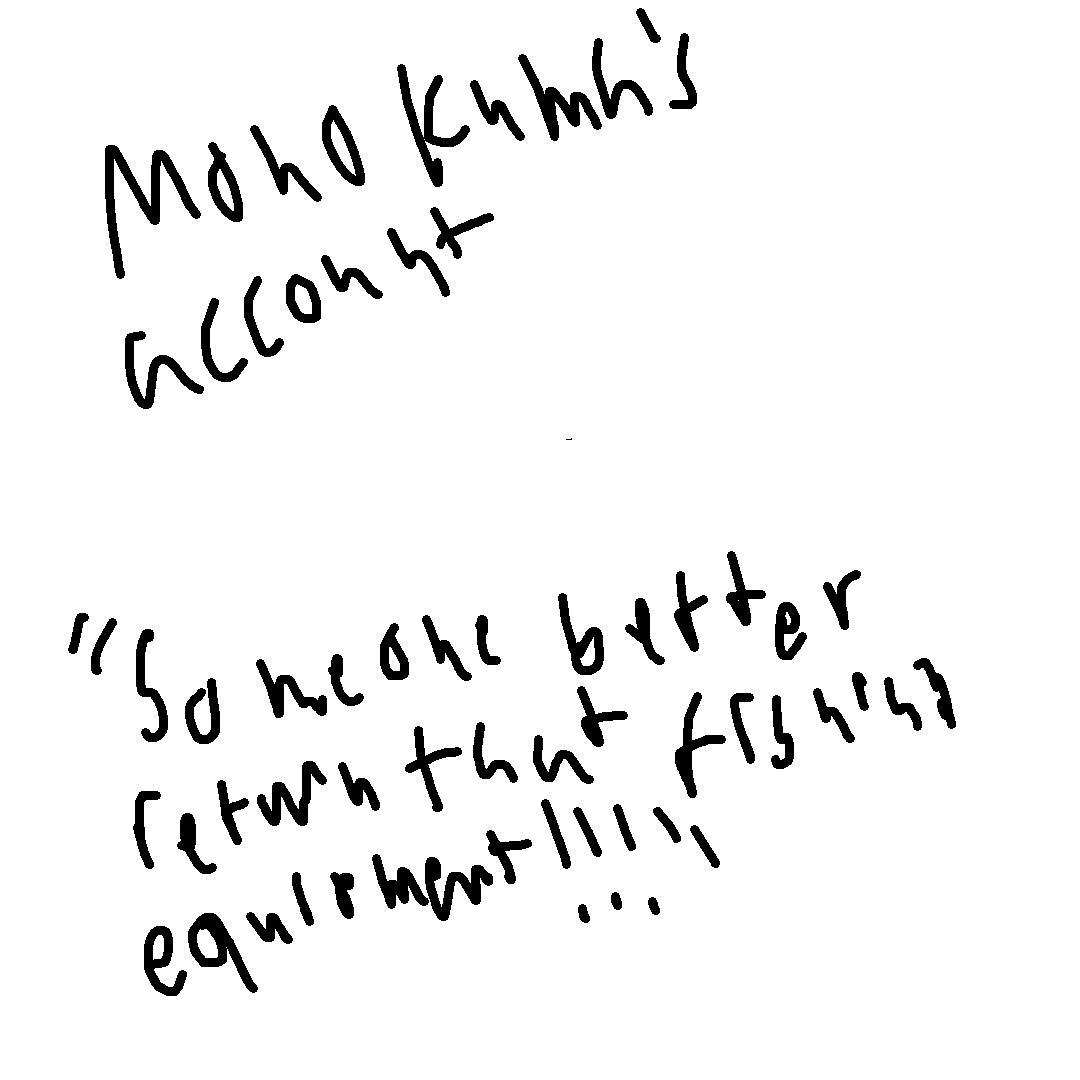 Mono Kumh's
account
"Someone better
return that fishing
equipment!!!"